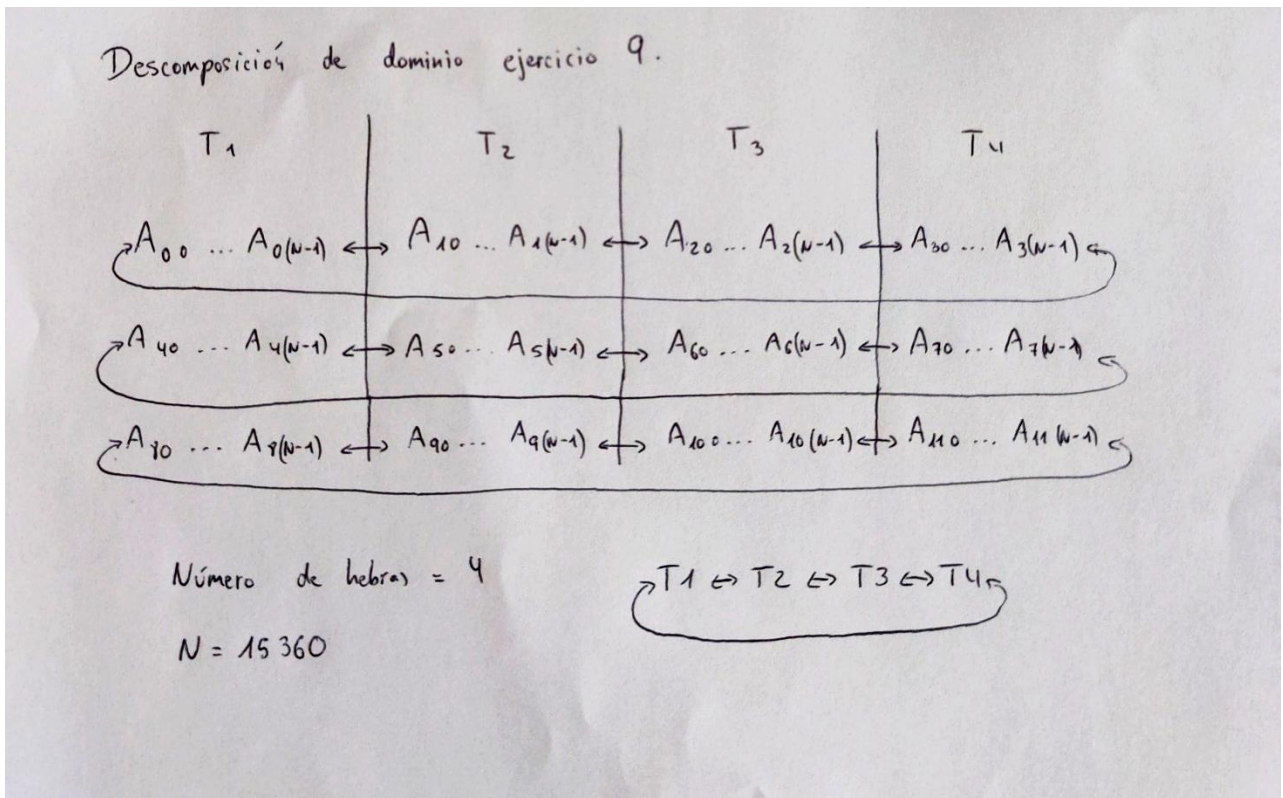 Descomposición de dominio ejercicio 9.
T1 T2 T3 T4
A00 ... A0(N-1) ↔ A10 ... A1(N-1) ↔ A20 ... A2(N-1) ↔ A30 ... A3(N-1)
A40 ... A4(N-1) ↔ A50 ... A5(N-1) ↔ A60 ... A6(N-1) ↔ A70 ... A7(N-1)
A80 ... A8(N-1) ↔ A90 ... A9(N-1) ↔ A100 ... A10(N-1) ↔ A110 ... A11(N-1)
Número de hebras = 4
T1 ↔ T2 ↔ T3 ↔ T4
N = 15360